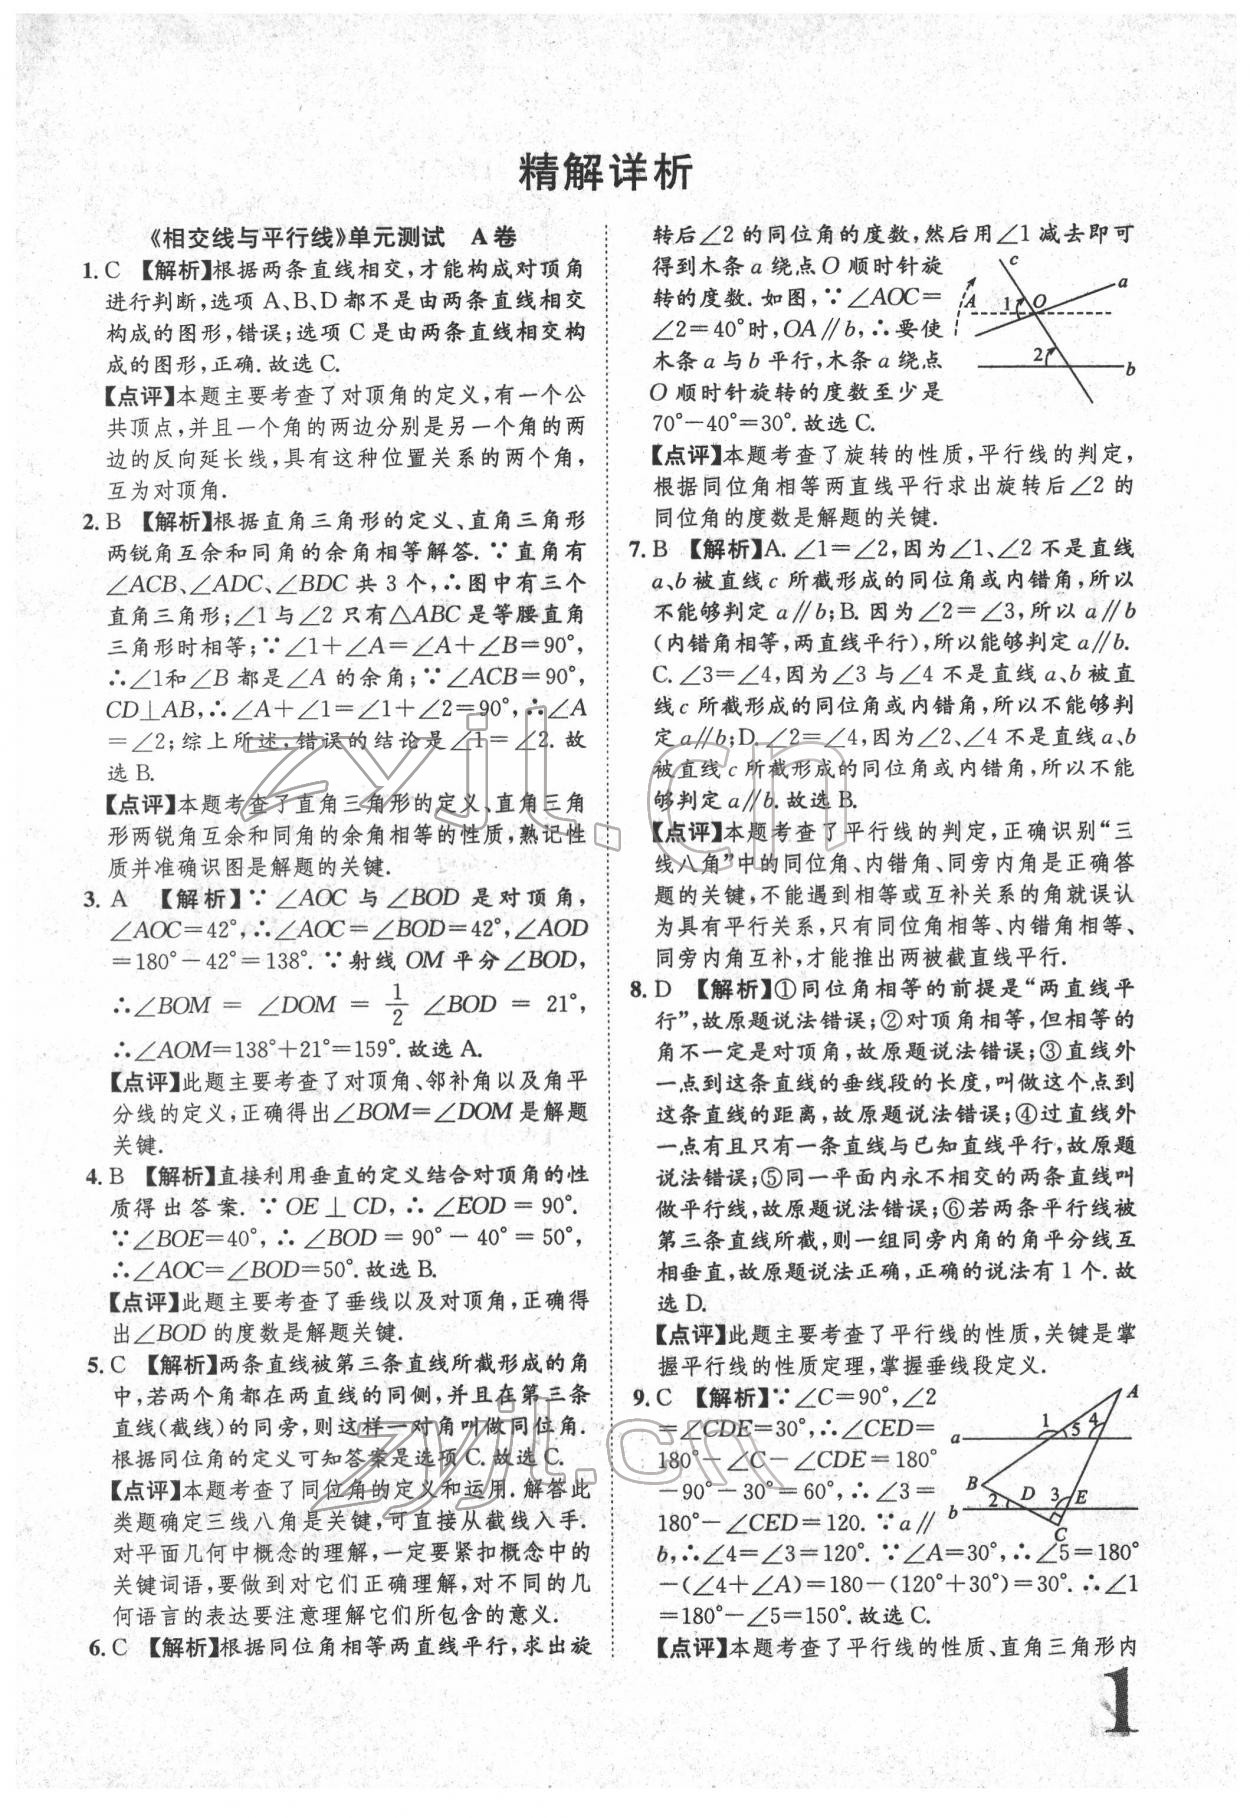 精解详析
《相交线与平行线》单元测试 A卷
1. C 【解析】根据两条直线相交,才能构成对顶角
进行判断,选项 A、B、D 都不是由两条直线相交
构成的图形,错误;选项 C 是由两条直线相交构
成的图形,正确.故选C.
【点评】本题主要考查了对顶角的定义,有一个公
共顶点,并且一个角的两边分别是另一个角的两
边的反向延长线,具有这种位置关系的两个角,
互为对顶角.
2. B 【解析】根据直角三角形的定义、直角三角形
两锐角互余和同角的余角相等解答.∵直角有
∠ACB、∠ADC、∠BDC 共 3 个,∴图中有三个
直角三角形;∠1与∠2只有△ABC是等腰直角
三角形时相等;∵∠1+∠A=∠A+∠B=90°,
∴∠1和∠B 都是∠A 的余角;∵∠ACB=90°,
CD⊥AB,∴∠A+∠1=∠1+∠2=90°,∴∠A
=∠2;综上所述,错误的结论是∠1=∠2.故
选B.
【点评】本题考查了直角三角形的定义、直角三角
形两锐角互余和同角的余角相等的性质,熟记性
质并准确识图是解题的关键.
3. A 【解析】∵∠AOC 与∠BOD 是对顶角,
∠AOC=42°,∴∠AOC=∠BOD=42°,∠AOD
=180°-42°=138°.∵射线 OM 平分∠BOD,
∴∠BOM = ∠DOM = 1/2 ∠BOD = 21°,
∴∠AOM=138°+21°=159°.故选 A.
【点评】此题主要考查了对顶角、邻补角以及角平
分线的定义,正确得出∠BOM=∠DOM是解题
关键.
4. B 【解析】直接利用垂直的定义结合对顶角的性
质得出答案.∵OE⊥CD,∴∠EOD=90°.
∵∠BOE=40°,∴∠BOD=90°-40°=50°,
∴∠AOC=∠BOD=50°.故选B.
【点评】此题主要考查了垂线以及对顶角,正确得
出∠BOD的度数是解题关键.
5. C 【解析】两条直线被第三条直线所截形成的角
中,若两个角都在两直线的同侧,并且在第三条
直线(截线)的同旁,则这样一对角叫做同位角.
根据同位角的定义可知答案是选项C.故选C.
【点评】本题考查了同位角的定义和运用.解答此
类题确定三线八角是关键,可直接从截线入手.
对平面几何中概念的理解,一定要紧扣概念中的
关键词语,要做到对它们正确理解,对不同的几
何语言的表达要注意理解它们所包含的意义.
6. C 【解析】根据同位角相等两直线平行,求出旋
转后∠2的同位角的度数,然后用∠1减去即可
得到木条a绕点O 顺时针旋
转的度数.如图,∵∠AOC=
∠2=40°时,OA∥b,∴要使
木条a与b平行,木条a绕点
O 顺时针旋转的度数至少是
70°-40°=30°.故选C.
c
a
A
1
O
2
b
【点评】本题考查了旋转的性质,平行线的判定,
根据同位角相等两直线平行求出旋转后∠2的
同位角的度数是解题的关键.
7. B 【解析】A.∠1=∠2,因为∠1、∠2不是直线
a、b被直线c所截形成的同位角或内错角,所以
不能够判定a∥b;B.因为∠2=∠3,所以a∥b
(内错角相等,两直线平行),所以能够判定a∥b.
C.∠3=∠4,因为∠3与∠4不是直线a、b被直
线c所截形成的同位角或内错角,所以不能够判
定a∥b;D.∠2=∠4,因为∠2、∠4不是直线a、b
被直线c所截形成的同位角或内错角,所以不能
够判定a∥b.故选B.
【点评】本题考查了平行线的判定,正确识别“三
线八角”中的同位角、内错角、同旁内角是正确答
题的关键,不能遇到相等或互补关系的角就误认
为具有平行关系,只有同位角相等、内错角相等、
同旁内角互补,才能推出两被截直线平行.
8. D 【解析】①同位角相等的前提是“两直线平
行”,故原题说法错误;②对顶角相等,但相等的
角不一定是对顶角,故原题说法错误;③直线外
一点到这条直线的垂线段的长度,叫做这个点到
这条直线的距离,故原题说法错误;④过直线外
一点有且只有一条直线与已知直线平行,故原题
说法错误;⑤同一平面内永不相交的两条直线叫
做平行线,故原题说法错误;⑥若两条平行线被
第三条直线所截,则一组同旁内角的角平分线互
相垂直,故原题说法正确,正确的说法有1个.故
选D.
【点评】此题主要考查了平行线的性质,关键是掌
握平行线的性质定理,掌握垂线段定义.
9. C 【解析】∵∠C=90°,∠2
=∠CDE=30°,∴∠CED=
180°-∠C-∠CDE=180°
-90°-30°=60°,∴∠3=
180°-∠CED=120.∵a∥
b,∴∠4=∠3=120°.∵∠A=30°,∴∠5=180°
-(∠4+∠A)=180-(120°+30°)=30°.∴∠1
=180°-∠5=150°.故选C.
A
1
5
4
a
B
2
D
3
E
b
C
【点评】本题考查了平行线的性质、直角三角形内
1
zyjl.cn
zyjl.cn